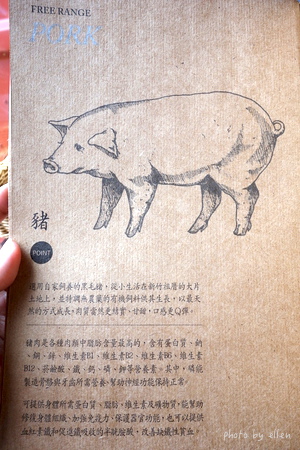 FREE RANGE
PORK
豬
POINT
選用自家飼養的黑毛豬，從小生活在新竹祖厝的大片
土地上，並特調無農藥的有機飼料供其生長，以最天
然的方式成長，肉質當然更結實、甘甜，口感更Q彈。
豬肉是各種肉類中脂肪含量最高的，含有蛋白質、鈉
、銅、鋅、維生素B1、維生素B2、維生素B6、維生素
B12、菸鹼酸、鐵、鈣、磷、鉀等營養素。其中，磷能
製造骨骼與牙齒所需營養，幫助神經功能保持正常。
可提供身體所需蛋白質、脂肪，維生素及礦物質，能幫助
修復身體組織、加強免疫力、保護器官功能，也可以提供
血紅素鐵和促進鐵吸收的半胱胺酸，改善缺鐵性貧血。
photo by ellen